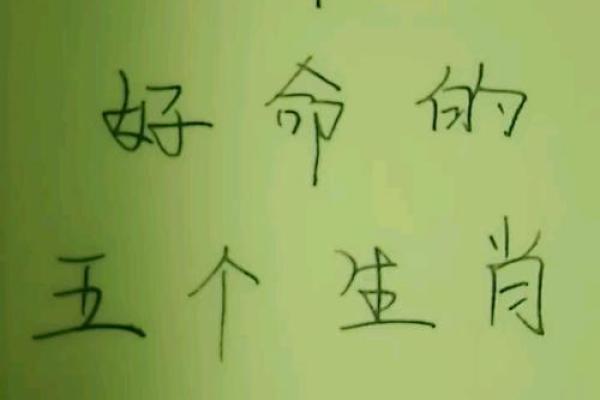 好命的
五个生肖